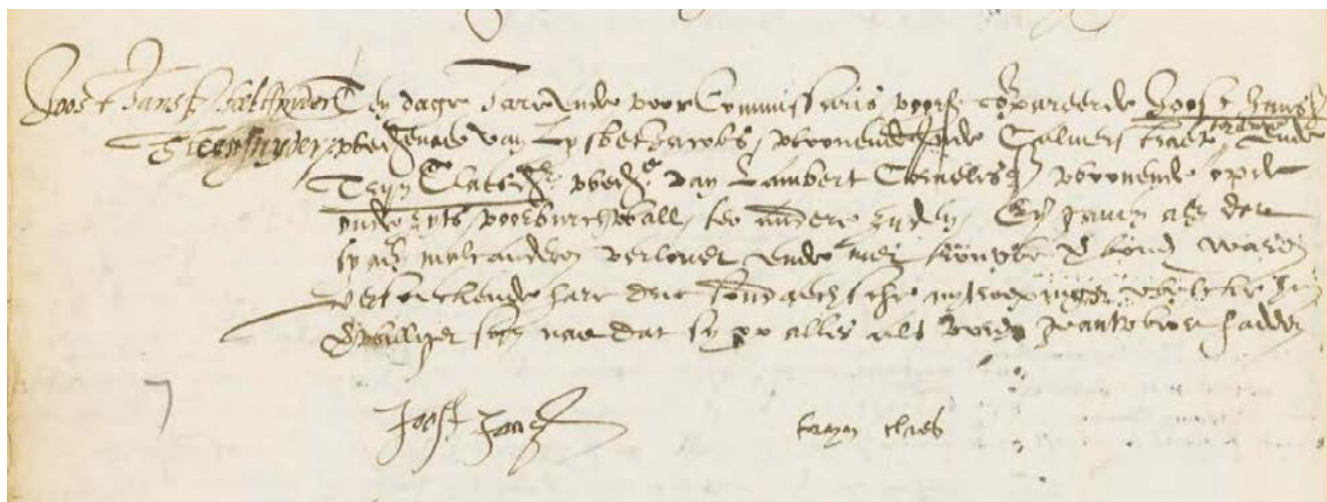 Joost Jansz beeltsnijder Ten dage Jare ende voor Commissaris voorsz compareerde Joost Jansz
weduenaer van Lysbet Jacobs, woonende inde Calverstraet, ter eenre ende
Tryn Claesdr wede van Lambert Cornelisz woonende opde
oude zyts voorburchwall, ter andere zyden, En gaven aen dat
sy met malcanderen verlooft ende met trouwe verbonden waren
versoeckende hare drie sondaechsche uytroepingen
nae dat sy op alles als vooren geantwoort hadden
Joost Jansz
tryn claes